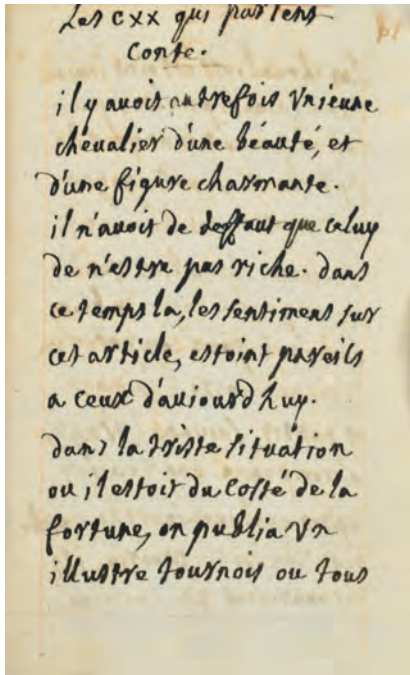 Les cxx qui parlent
Conte.
il y auoit autrefois vn ieune
cheualier d'une béauté, et
d'une figure charmante.
il n'auoit de deffaut que celuy
de n'estre pas riche. dans
ce temps la, les sentimens sur
cet article, estoint pareils
a ceux d'auiourdhuy.
dans la triste situation
ou il estoit du costé de la
fortune, on publia vn
illustre tournois ou tous